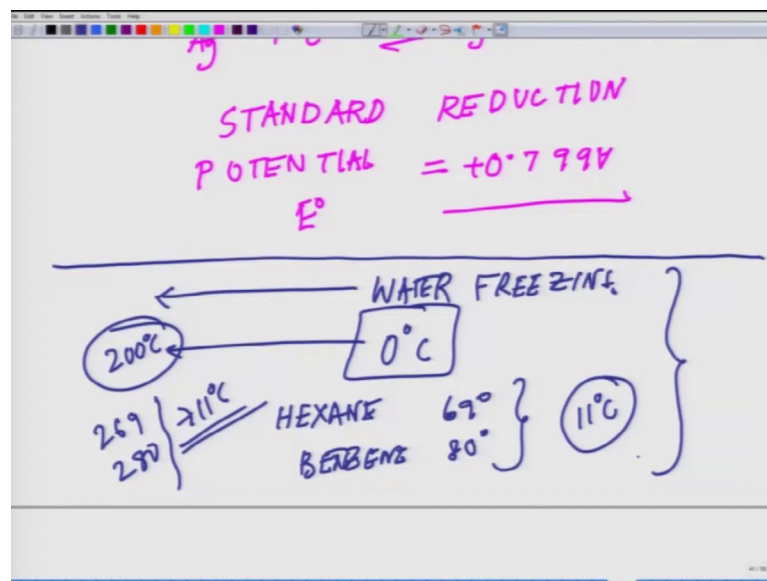 Edit View Insert Actions Tools Help
Ag
STANDARD REDUCTION
POTENTIAL = +0.799V
E°
WATER FREEZING.
200°C 0°C
269 >11°C HEXANE 69° 11°C
280 BENZENE 80°